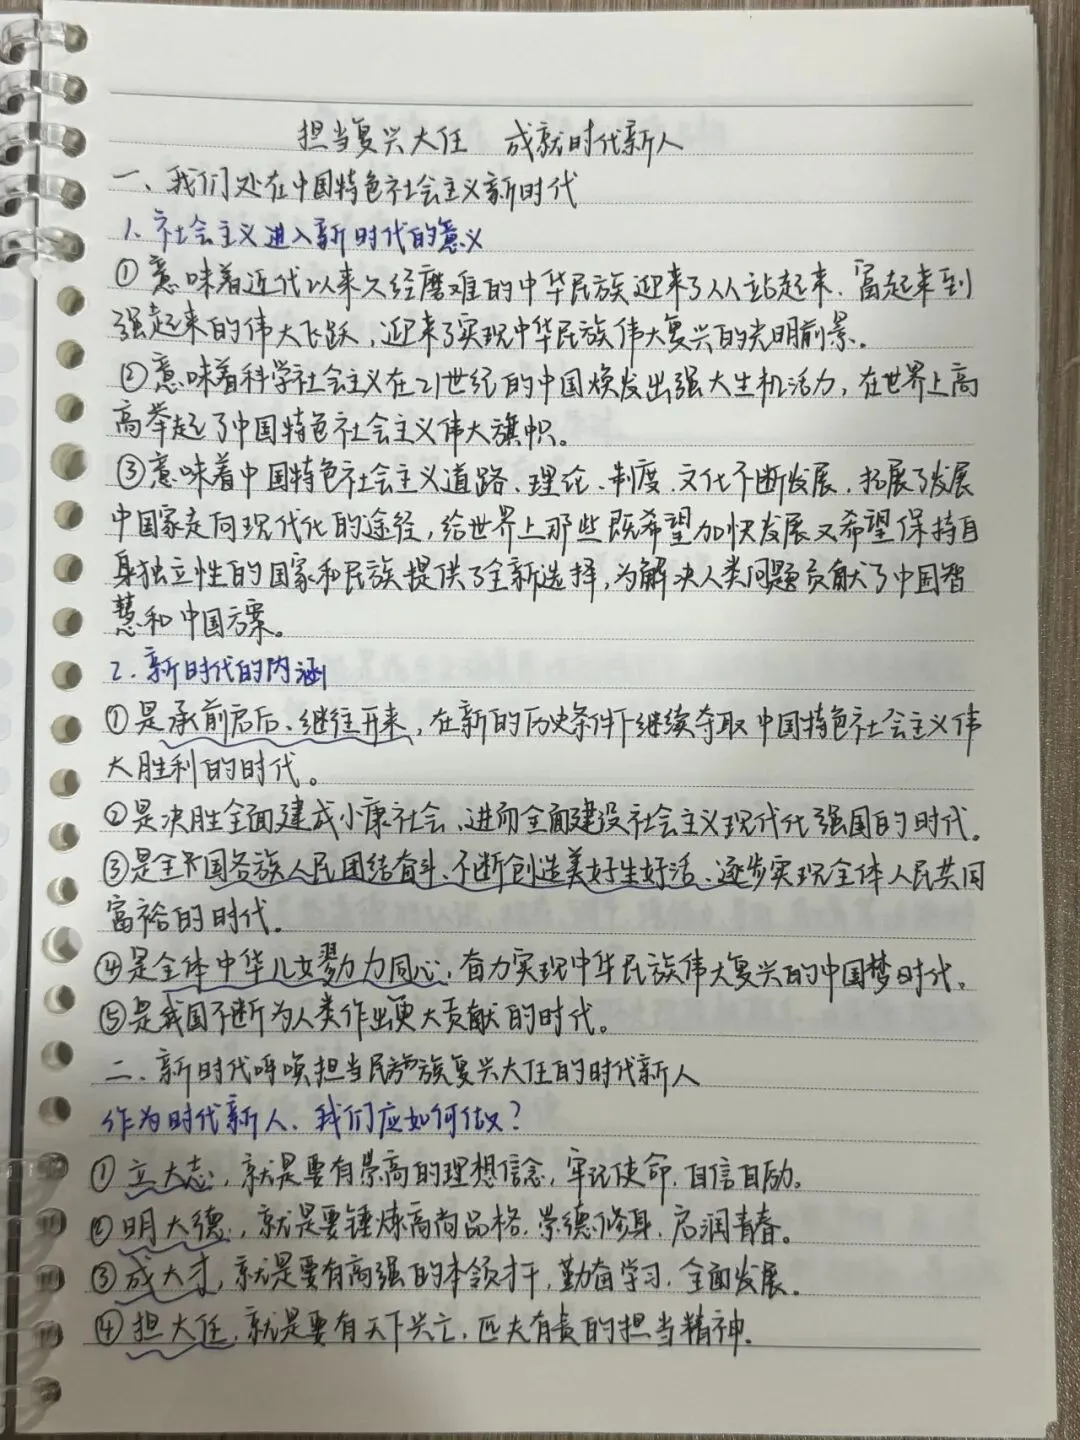 担当复兴大任 成就时代新人
一、我们处在中国特色社会主义新时代
1、社会主义进入新时代的意义
①意味着近代以来久经磨难的中华民族迎来了从站起来、富起来到
强起来的伟大飞跃，迎来了实现中华民族伟大复兴的光明前景。
②意味着科学社会主义在21世纪的中国焕发出强大生机活力，在世界上高
高举起了中国特色社会主义伟大旗帜。
③意味着中国特色社会主义道路、理论、制度、文化不断发展，拓展了发展
中国家走向现代化的途径，给世界上那些既希望加快发展又希望保持自
身独立性的国家和民族提供了全新选择，为解决人类问题贡献了中国智
慧和中国方案。
2.新时代的内涵
①是承前启后、继往开来，在新的历史条件下继续夺取中国特色社会主义伟
大胜利的时代。
②是决胜全面建成小康社会、进而全面建设社会主义现代化强国的时代。
③是全国各族人民团结奋斗、不断创造美好生好活、逐步实现全体人民共同
富裕的时代。
④是全体中华儿女勠力同心，奋力实现中华民族伟大复兴的中国梦时代。
⑤是我国不断为人类作出更大贡献的时代。
二、新时代呼唤担当民族复兴大任的时代新人
作为时代新人、我们应如何做？
①立大志，就是要有崇高的理想信念，牢记使命，自信自励。
②明大德，就是要锤炼高尚品格，崇德修身，启润青春。
③成大才，就是要有高强的本领才干，勤奋学习，全面发展。
④担大任，就是要有天下兴亡，匹夫有责的担当精神。